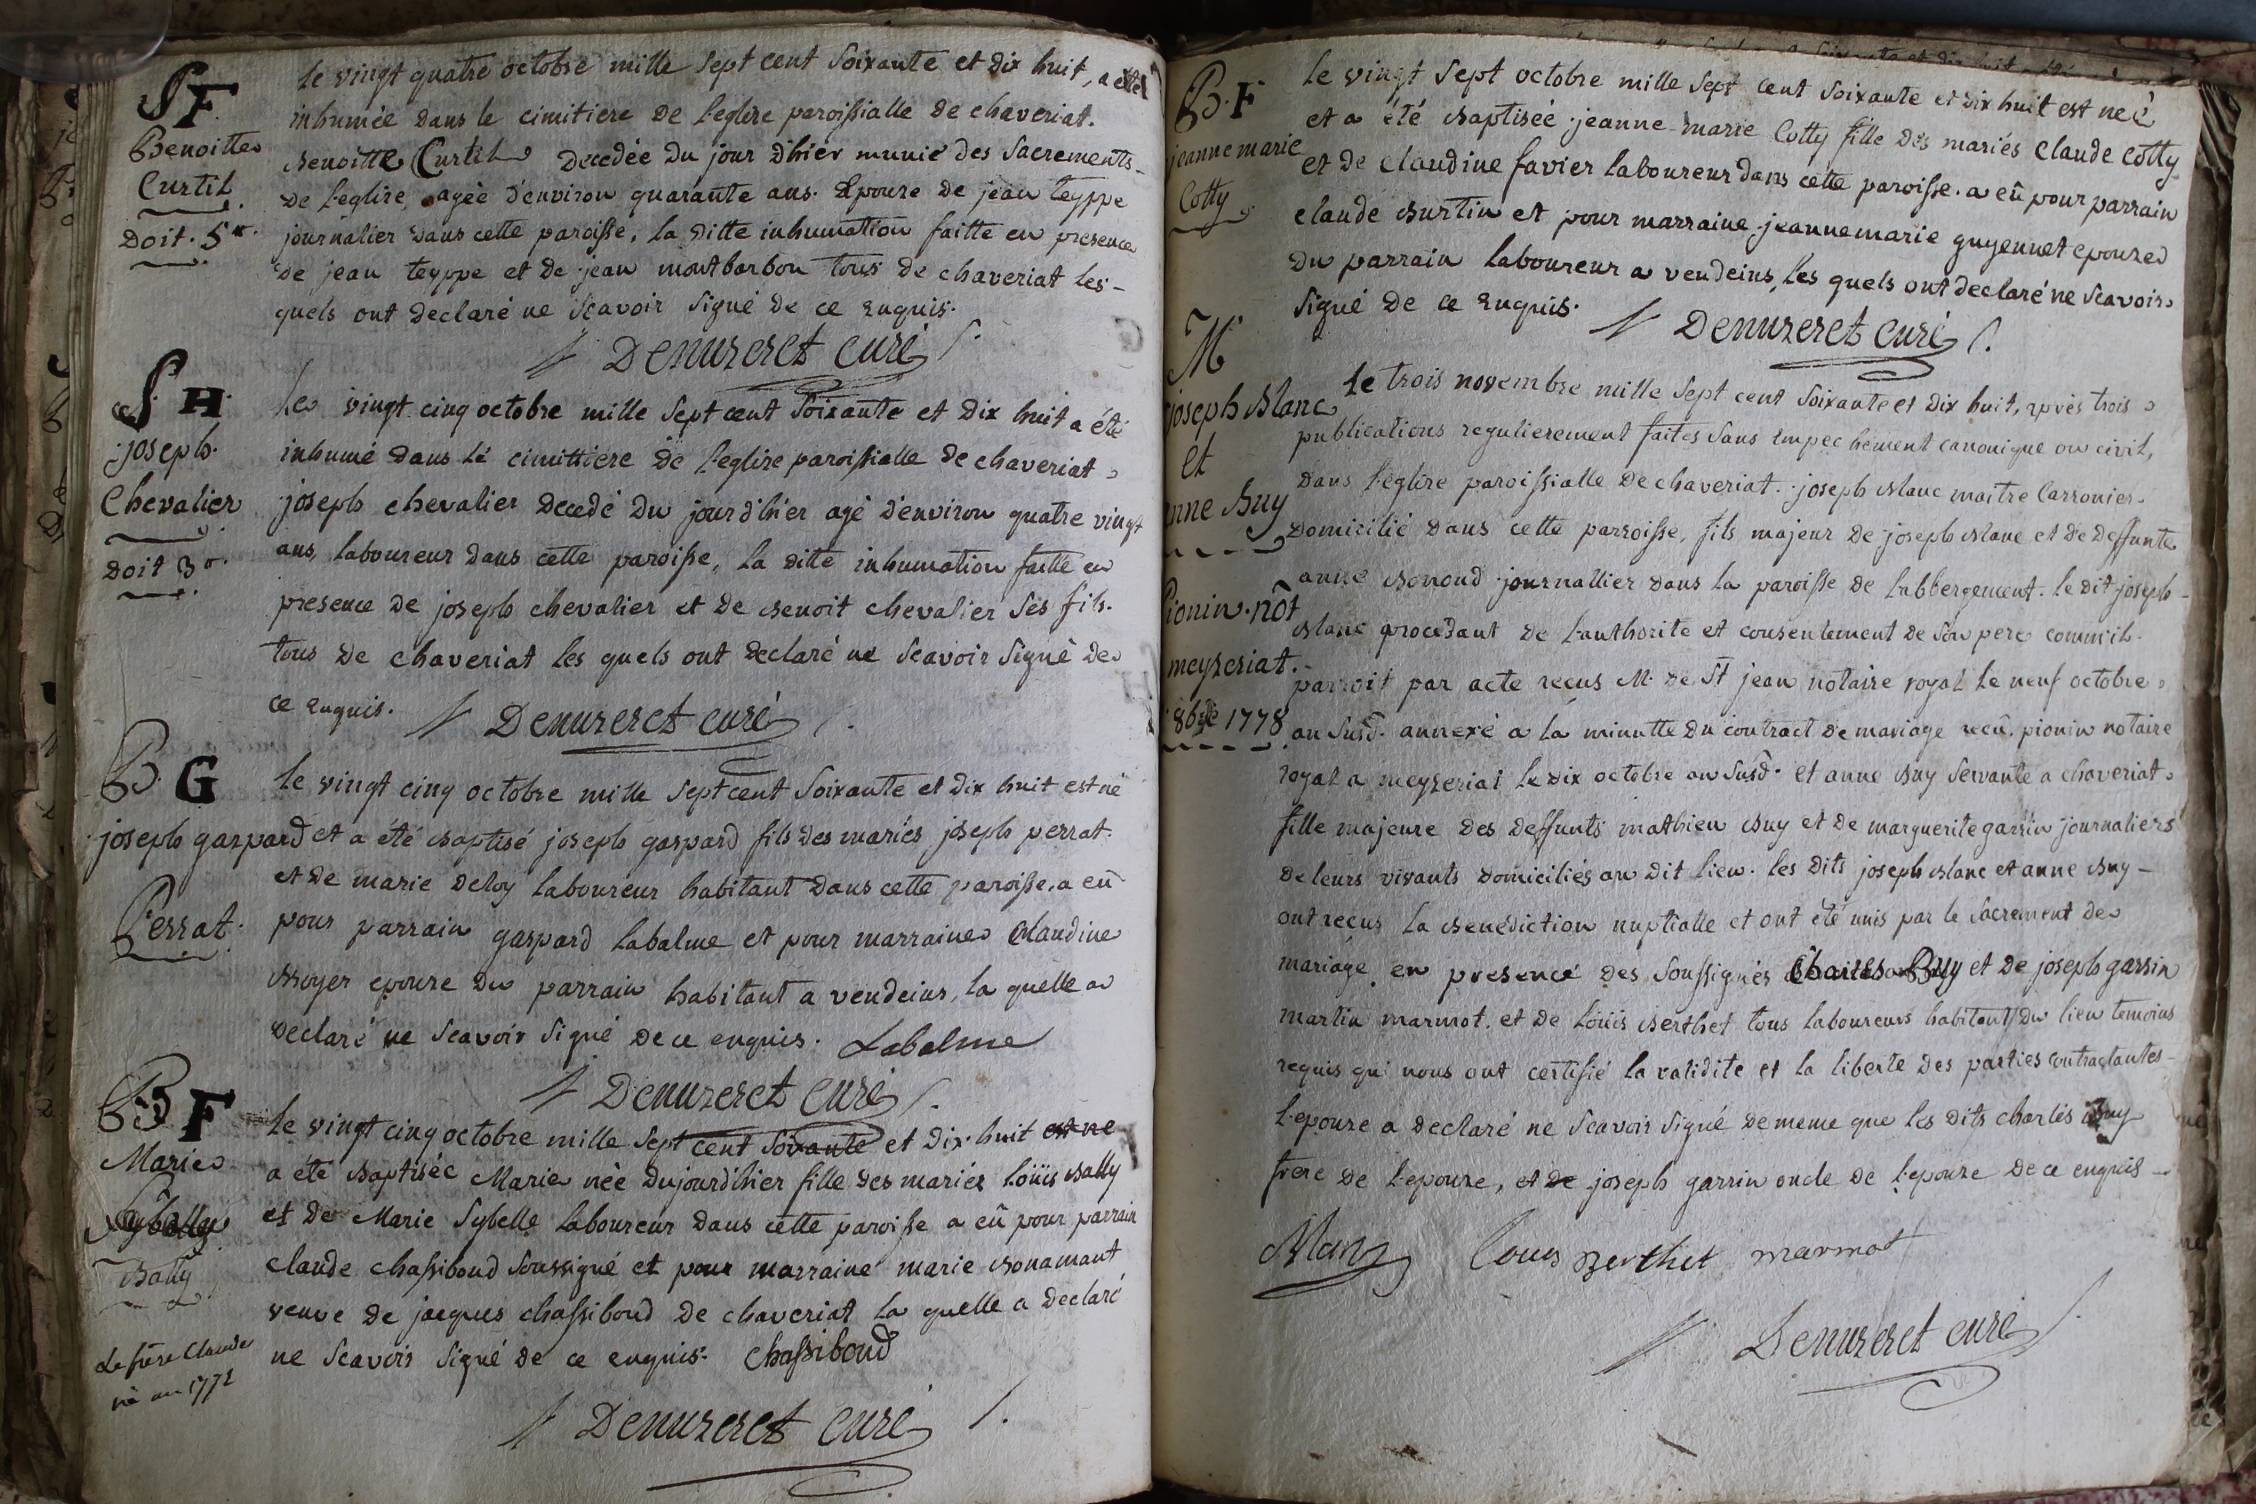 SF
Benoitte
Curtil
doit. 5
le vingt quatre octobre mille sept cent soixante et dix huit, a eté
inhumée dans le cimitiere de l'eglise paroissialle de chaveriat.
Benoitte Curtil decedée du jour d'hier munie des sacrements
de l'eglise, agée d'environ quarante ans. Epouse de jean teyppe
journalier dans cette paroisse, la ditte inhumation faitte en presence
de jean teyppe et de jean montbarbon tous de chaveriat les-
quels ont declaré ne scavoir signé de ce enquis.
Denuzeret curé
S. H.
joseph.
Chevalier
doit 3
Le vingt cinq octobre mille sept cent soixante et dix huit a été
inhumé dans le cimittiere de l'eglise paroissialle de chaveriat
joseph chevalier decedé du jour d'hier agé d'environ quatre vingt
ans, laboureur dans cette paroisse, la ditte inhumation faitte en
presence de joseph chevalier et de Benoit chevalier ses fils.
tous de chaveriat les quels ont declaré ne scavoir signé de
ce enquis.
Denuzeret curé
B. G
joseph gaspard
Perrat.
le vingt cinq octobre mille sept cent soixante et dix huit est né
et a été Baptisé joseph gaspard fils des mariés joseph perrat.
et de marie deloy laboureur habitant dans cette paroisse. a eû
pour parrain gaspard labalme et pour marraine Claudine
Boyer epouse du parrain habitant a vendeins, la quelle a
declaré ne scavoir signé de ce enquis. Labalme
Denuzeret curé
B F
Marie
Sybelle
Bally
Le frère Claude
né au 1772
le vingt cinq octobre mille sept cent soixante et dix huit est ne
a été Baptisée Marie née du jourd'hier fille des mariés loüis Bally
et de Marie Sybelle laboureur dans cette paroisse a eû pour parrain
claude chassiboud soussigné et pour marraine marie Bonamant
veuve de jacques chassiboud de chaveriat la quelle a declaré
ne scavoir signé de ce enquis. Chassiboud
Denuzeret curé
B. F
jeanne marie
Cotty
le vingt sept octobre mille sept cent soixante et dix huit est neé
et a été Baptiseé jeanne-marie Cotty fille des mariés Claude Cotty
et de Claudine favier laboureur dans cette paroisse. a eû pour parrain
claude Burtin et pour marraine jeanne marie guyennet epouse
du parrain laboureur a vendeins, les quels ont declaré ne scavoir
signé de ce enquis.
Denuzeret curé
M
joseph Blanc
et
anne Buy
Pionin. nôt
meyzeriat.
1778
Le trois novembre mille sept cent soixante et dix huit, après trois
publications regulierement faites sans empechement canonique ou civil,
dans l'eglise paroissialle de chaveriat. joseph Blanc maitre Carronier
domicilié dans cette parroisse, fils majeur de joseph Blanc et de deffunte
anne Bonoud journallier dans la paroisse de labbergement. le dit joseph
Blanc procedant de l'authorite et consentement de son pere comme il
parroit par acte recus M. de St jean notaire royal le neuf octobre
an susd. annexé a la minutte du contract de mariage recû. pionin notaire
royal a meyzeriat le dix octobre an susd. et anne Buy servante a chaveriat
fille majeure des deffunts mathieu Buy et de marguerite garrin journaliers
de leurs vivants domiciliés au dit lieu. les dits joseph Blanc et anne Buy
ont recus la Benediction nuptialle et ont été unis par le sacrement de
mariage, en presence des soussignés Charles Buy et de joseph garrin
martin marmot. et de loüis Berthet tous laboureurs habitant du lieu temoins
requis qui nous ont certifié la validite et la liberte des parties contractantes
l'epouse a declaré ne scavoir signé de meme que les dits charles Buy
frere de l'epouse, et de joseph garrin oncle de l'epouse de ce enquis
Blanc Louis Berthet marmot
Denuzeret curé